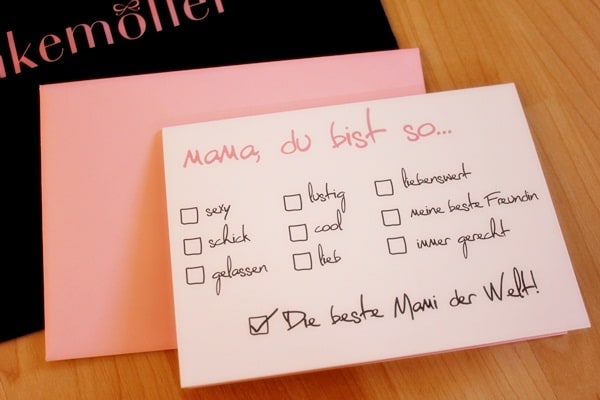 nkemöller
mama, du bist so...
sexy
schick
gelassen
lustig
cool
lieb
liebenswert
meine beste Freundin
immer gerecht
Die beste Mami der Welt!